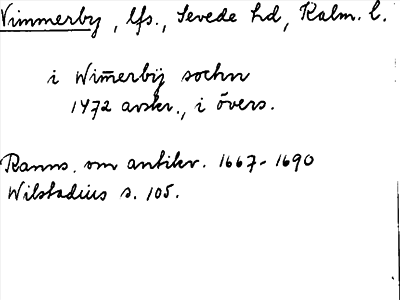 Vimmerby, lfs., Sevede hd, Kalm. l.
i Wim̄erbÿ sochn
1472 avskr., i övers.
Ranns. om antikv. 1667-1690
Wilstadius s. 105.